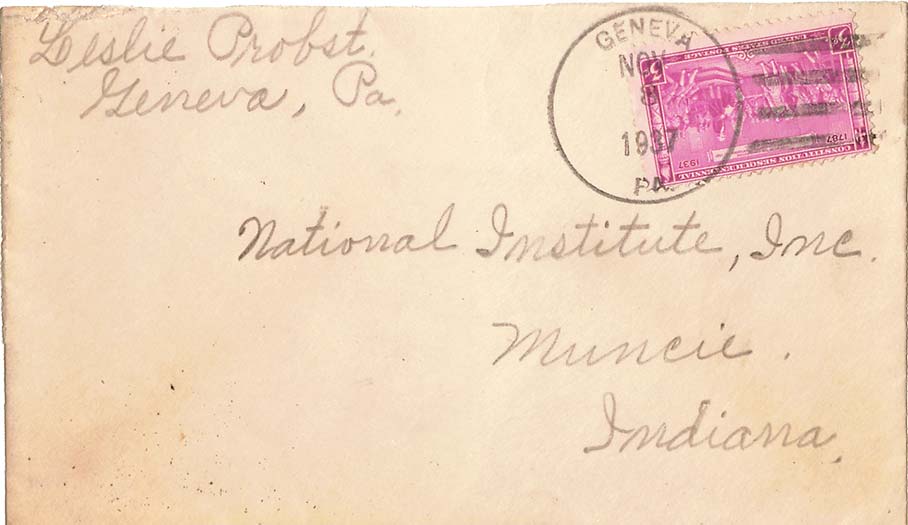 Leslie Probst.
Geneva, Pa.
GENEVA
NOV
8
1937
PA.
UNITED STATES POSTAGE
3¢ 3¢
1787 1937
CONSTITUTION SESQUICENTENNIAL
National Institute, Inc.
Muncie.
Indiana.